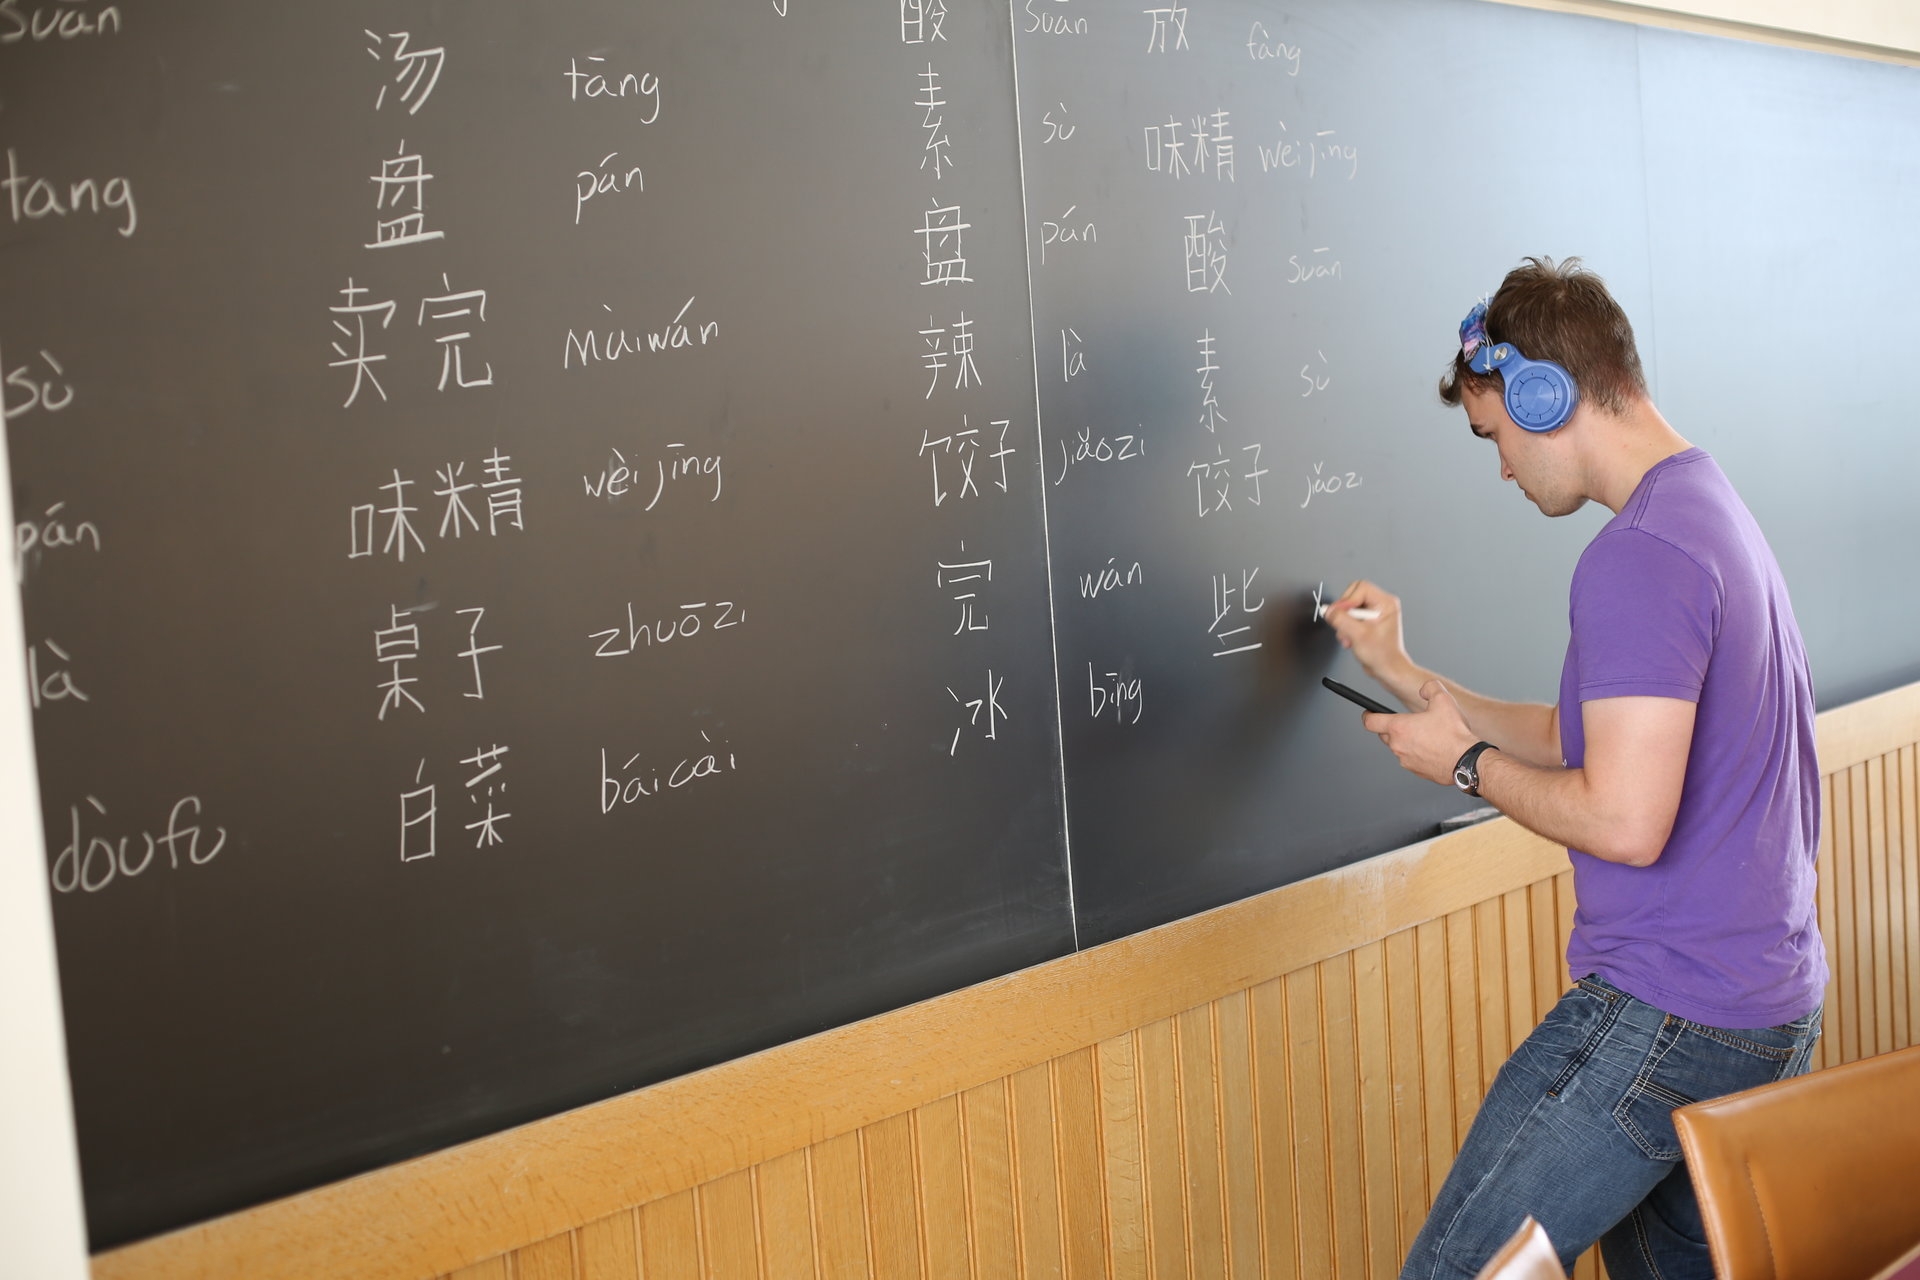 suān
tang
sù
pán
là
dòufu
汤 tāng
盘 pán
卖完 màiwán
味精 wèijīng
桌子 zhuōzi
白菜 báicài
酸 suān
素 sù
盘 pán
辣 là
饺子 jiǎozi
完 wán
冰 bīng
放 fàng
味精 wèijīng
酸 suān
素 sù
饺子 jiǎozi
些 x